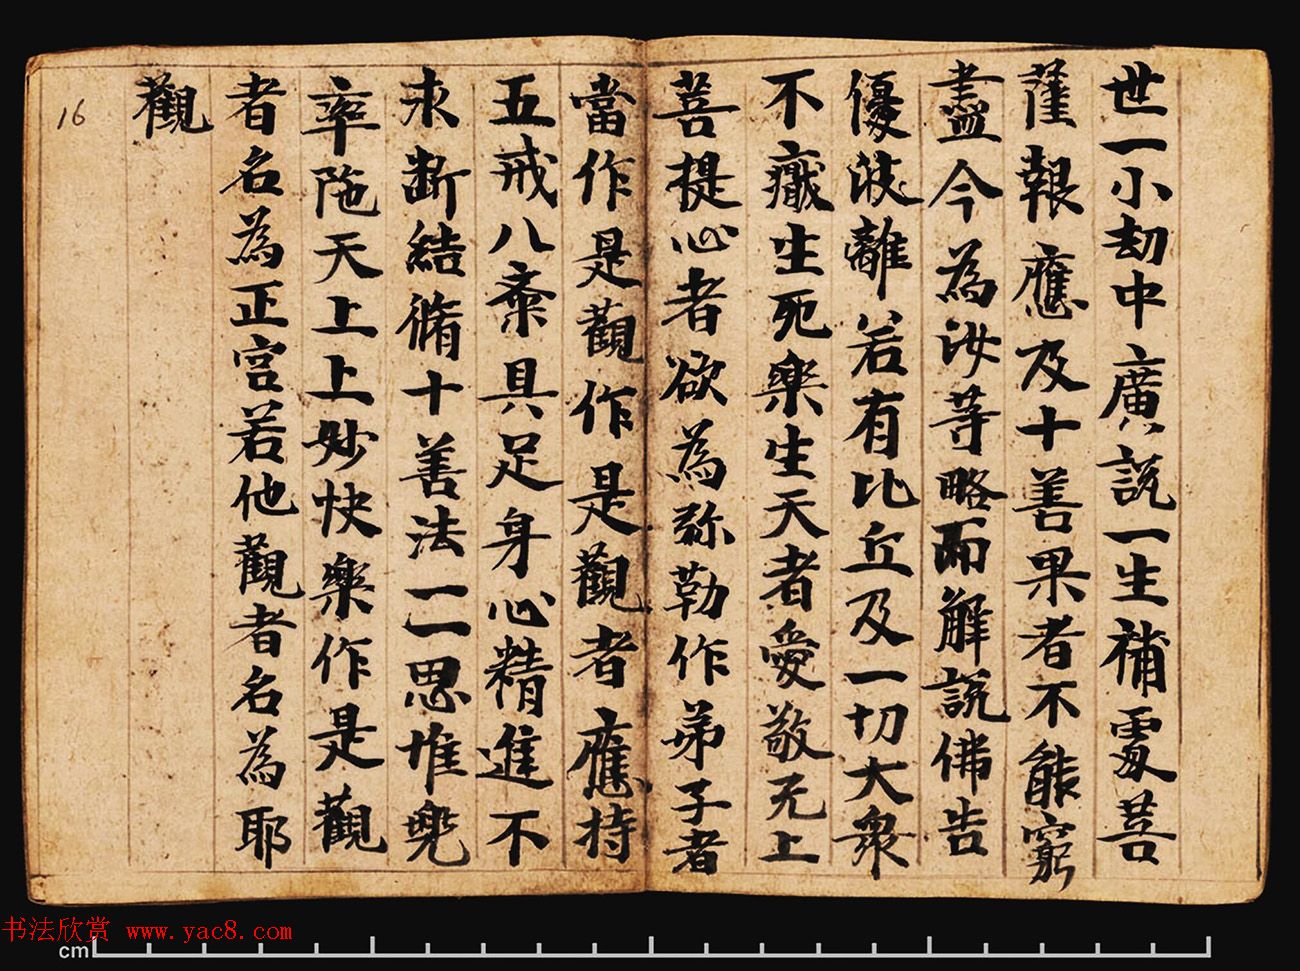 世一小劫中廣說一生補處菩
薩報應及十善果者不能窮
盡今為汝等略而解說佛告
優波離若有比丘及一切大衆
不癡生死樂生天者愛敬无上
菩提心者欲為弥勒作弟子者
當作是觀作是觀者應持
五戒八齋具足身心精進不
求斷結脩十善法一一思惟兜
率陁天上上妙快樂作是觀
者名為正宫若他觀者名為耶
觀
16
书法欣赏 www.yac8.com
cm